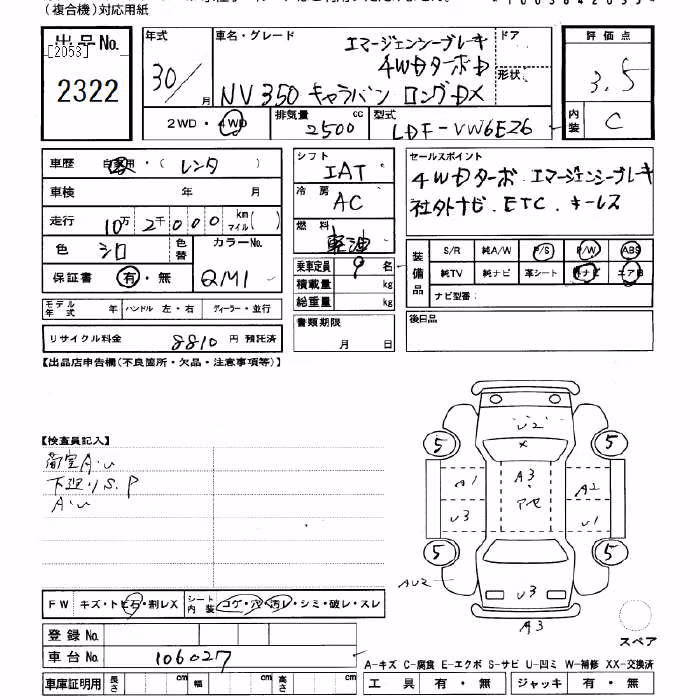 (複合機)対応用紙
出品No.
[2053]
2322
年式
30/
月
車名・グレード
エマージェンシーブレーキ
4WDターボD
NV350 キャラバン ロングDX
ドア
形状
評価点
3.5
内装
C
2WD・4WD
排気量
2500
cc
型式
LDF-VW6E26
車歴 自家用・( レンタ )
車検 年 月
走行 10万 2千 000 km マイル( )
色 シロ
色替
カラーNo.
QM1
保証書 有・無
モデル年式 年
ハンドル 左・右
ディーラー・並行
リサイクル料金 8810 円 預託済
シフト
IAT
冷房
AC
燃料
軽油
乗車定員 9 名
積載量 kg
総重量 kg
書類期限
月 日
セールスポイント
4WDターボ. エマージェンシーブレーキ
社外ナビ. ETC. キーレス
装備品
S/R 純A/W P/S P/W ABS
純TV 純ナビ 革シート 外ナビ エアB
ナビ型番:
後日品
【出品店申告欄(不良箇所・欠品・注意事項等)】
【検査員記入】
荷室A・U
下廻りS.P
A・U
U2
×
A3
アセ
A1
U3
A2
U1
AU2
U3
A3
5
5
5
5
スペア
FW キズ・トビ石・割レX
シート内装 コゲ・穴・汚レ・シミ・破レ・スレ
登録No.
車台No. 106027
車庫証明用 長さ cm 幅 cm 高さ cm
A-キズ C-腐食 E-エクボ S-サビ U-凹ミ W-補修 XX-交換済
工具 有・無 ジャッキ 有・無